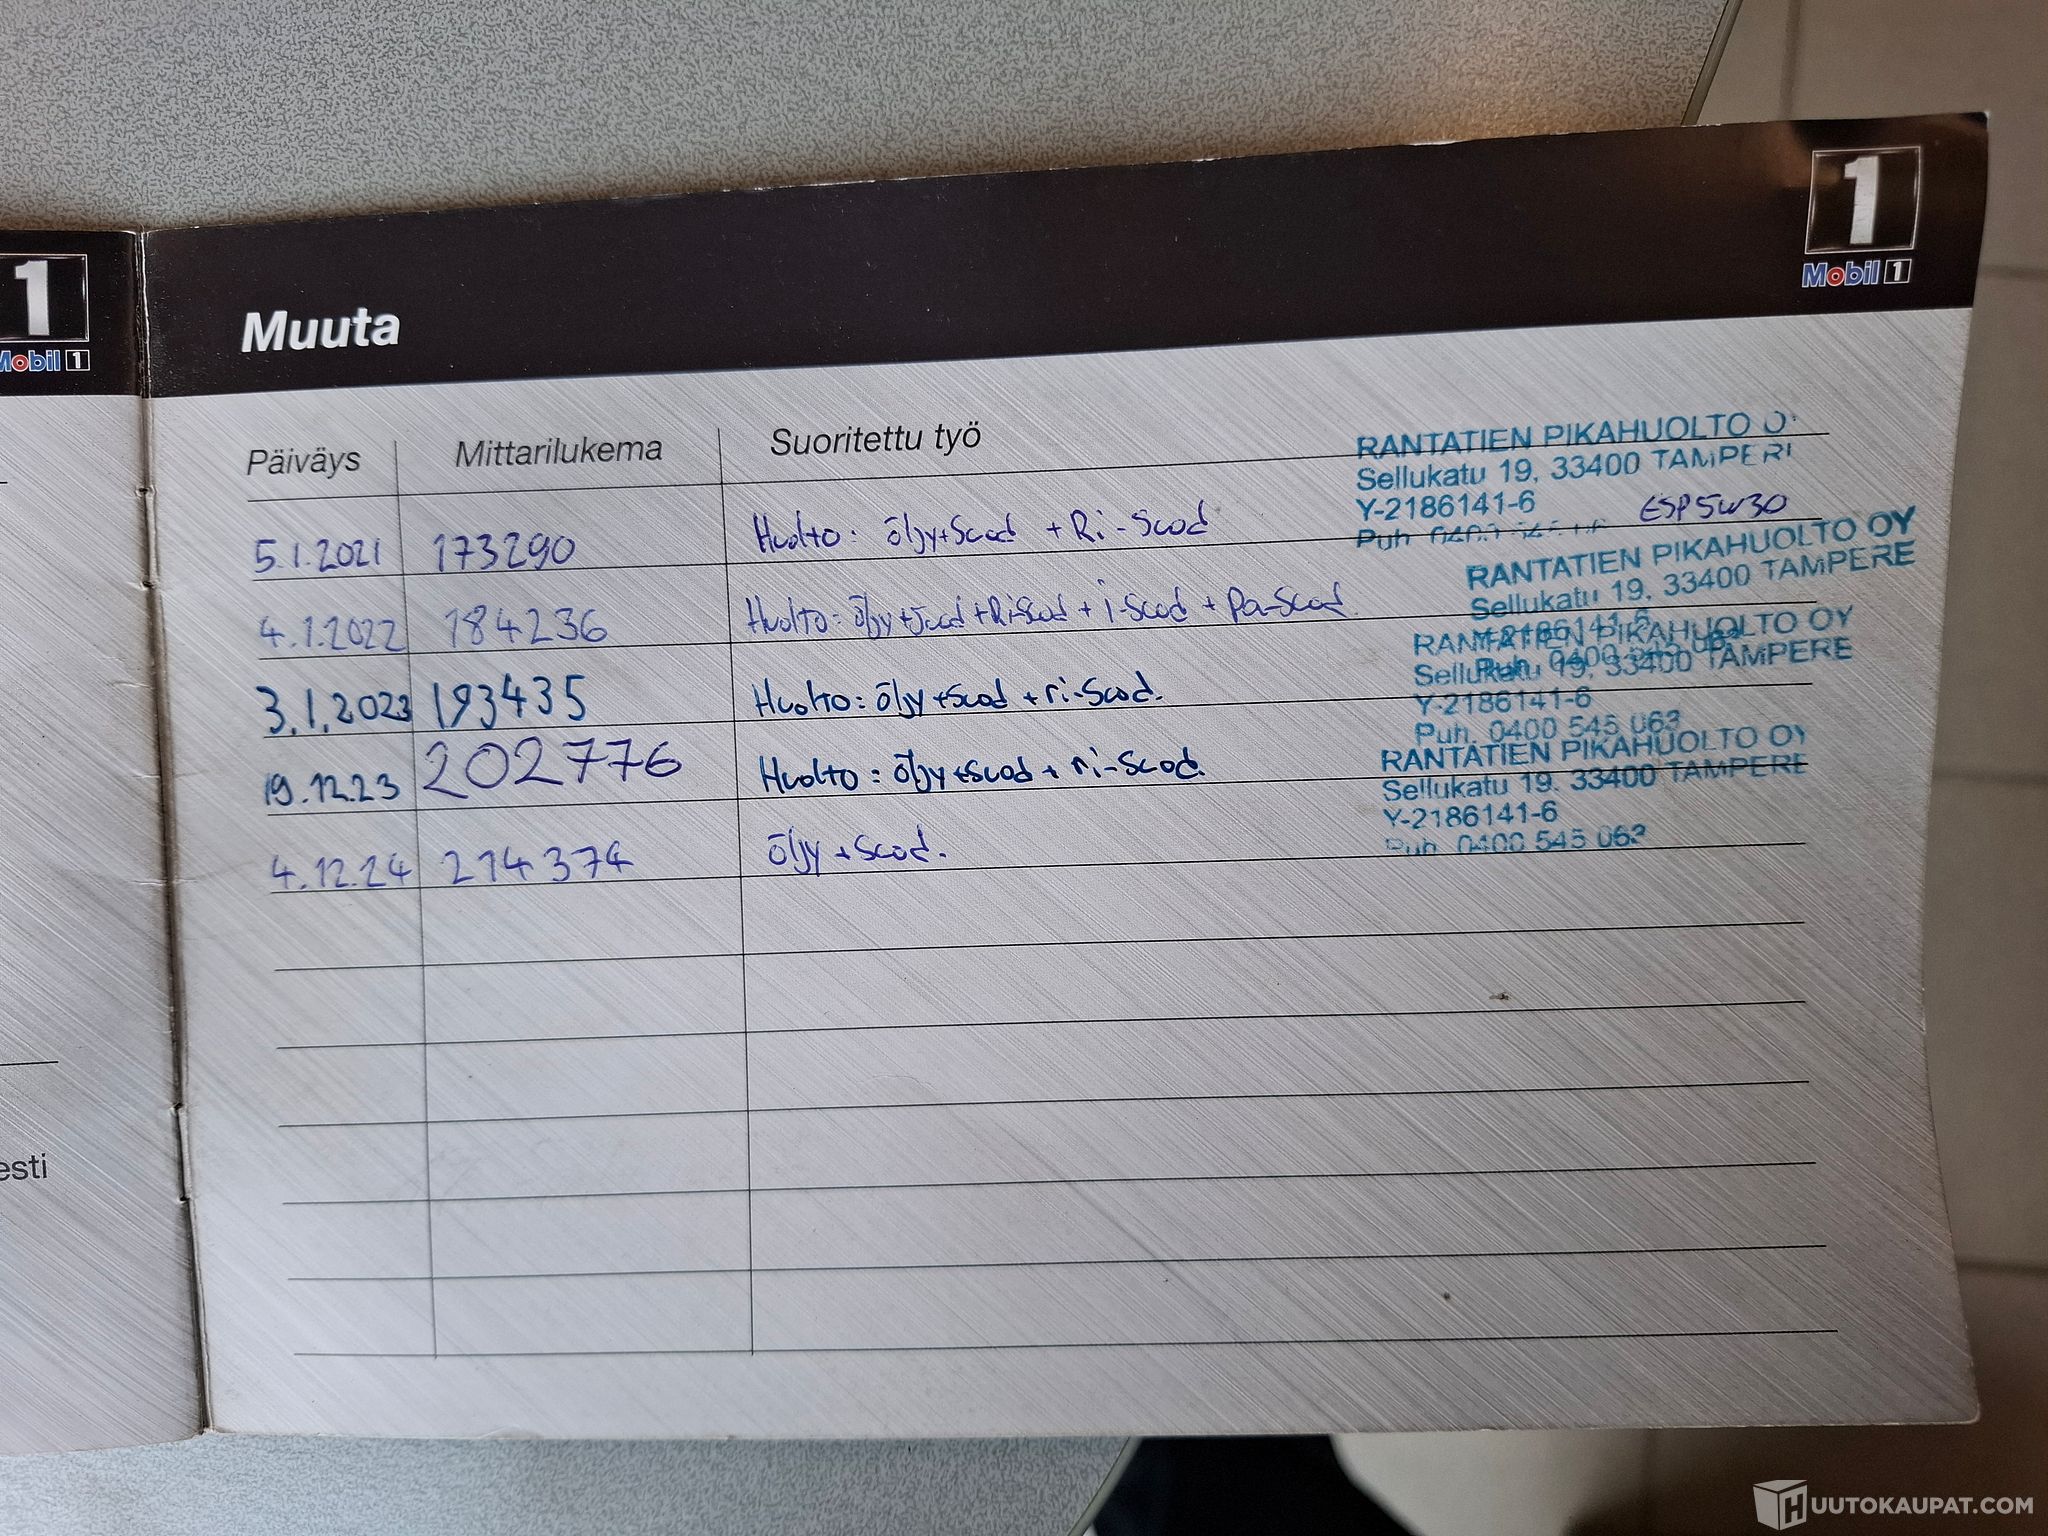 1
Mobil 1
1
Mobil 1
Muuta
Päiväys Mittarilukema Suoritettu työ
RANTATIEN PIKAHUOLTO O
Sellukatu 19, 33400 TAMPERI
Y-2186141-6
Puh
ESP 5W30
5.1.2021 173290 Huolto: öljy+Suod + Ri-Suod
RANTATIEN PIKAHUOLTO OY
Sellukatu 19, 33400 TAMPERE
Y-2186141-6
Puh. 0400 545 063
4.1.2022 184236 Huolto: öljy+Suod+Ri-Suod + i-Suod + Pa-Suod.
RANTATIEN PIKAHUOLTO OY
Sellukatu 19, 33400 TAMPERE
Y-2186141-6
Puh. 0400 545 063
3.1.2023 193435 Huolto: öljy+Suod + ri-Suod.
RANTATIEN PIKAHUOLTO OY
Sellukatu 19. 33400 TAMPERE
Y-2186141-6
Puh. 0400 545 063
19.12.23 202776 Huolto: öljy+suod + ri-Suod.
4.12.24 214374 öljy + Suod.
esti
HUUTOKAUPAT.COM